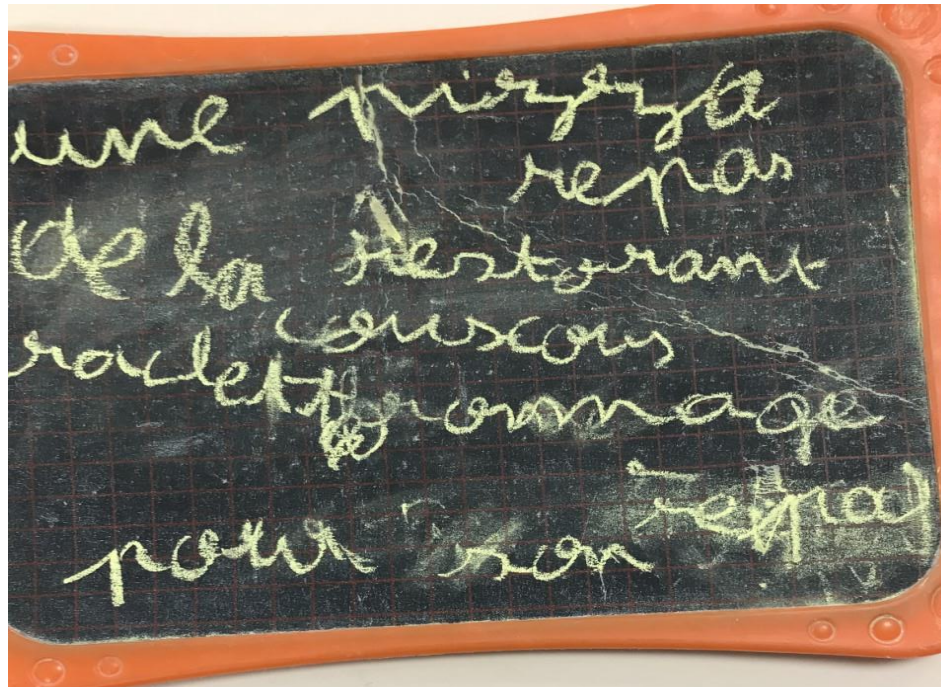 une pizza
repas
de la restorant
couscous
raclette frommage
pour son repas